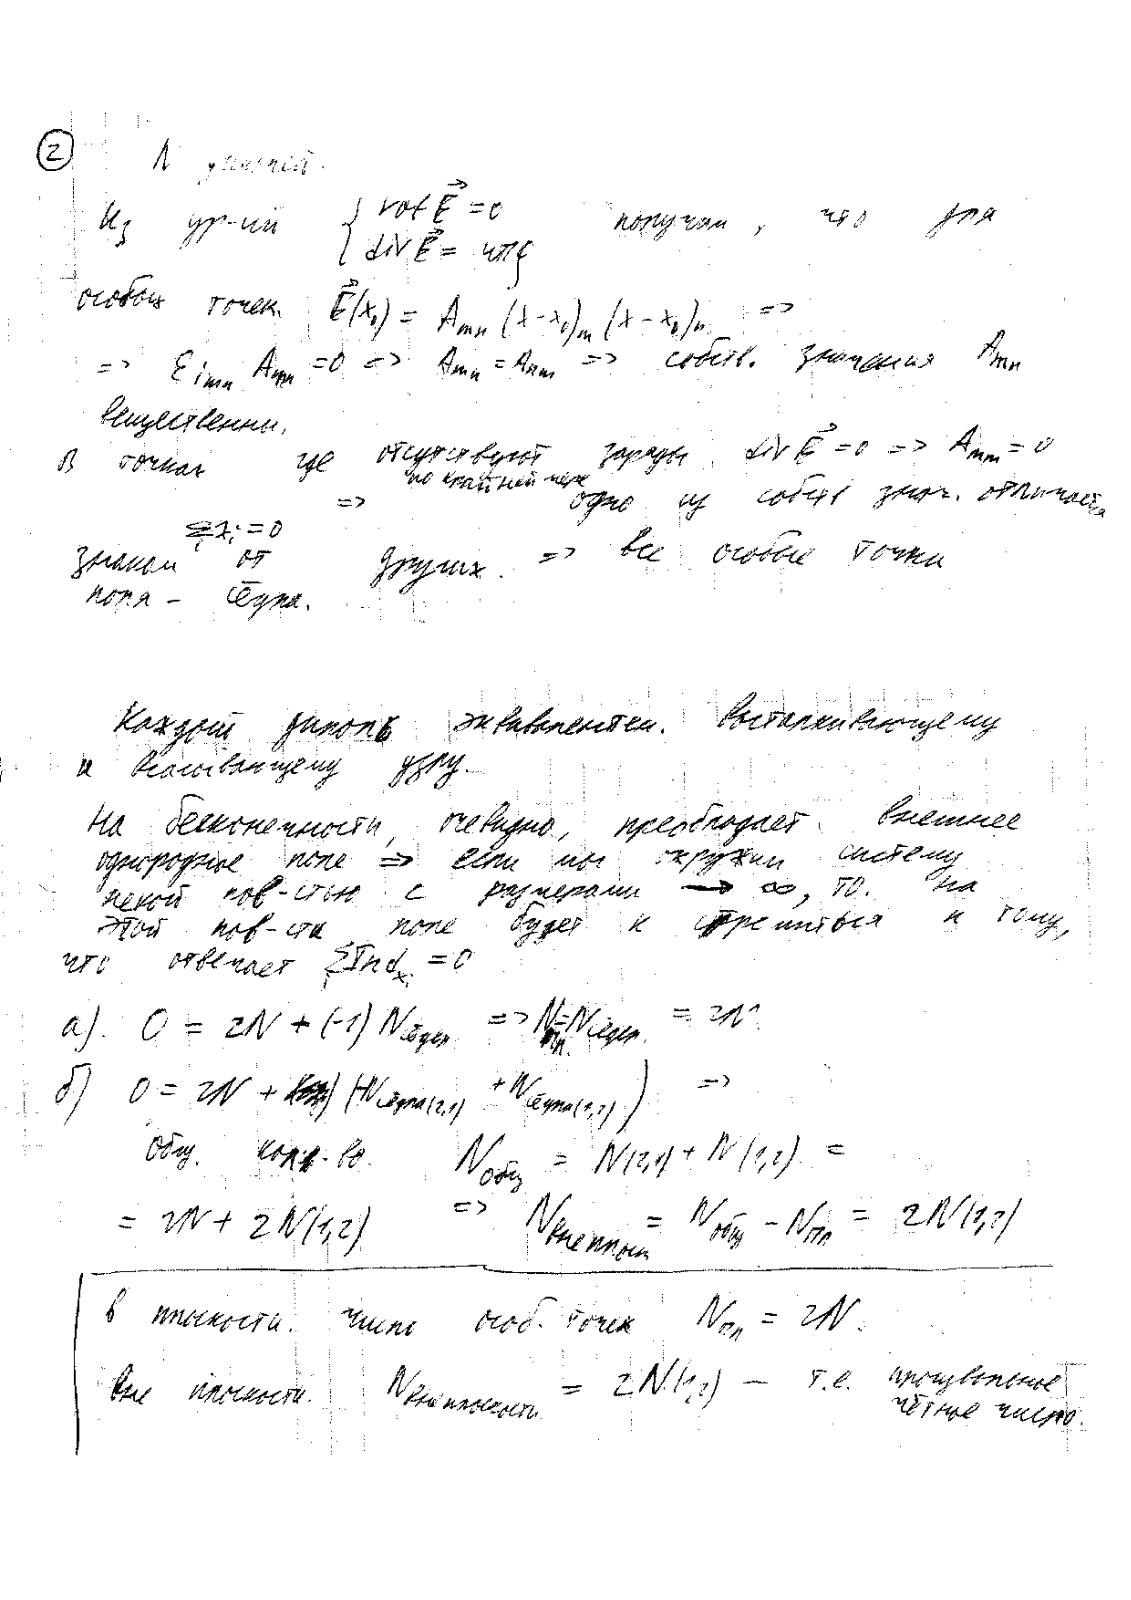 ② N диполей.
Из ур-ий { rot E⃗ = 0 получаем, что для
div E⃗ = 4πρ
особых точек. E⃗(x₀) = Aₘₙ (x-x₀)ₘ (x-x₀)ₙ =>
=> εᵢₘₙ Aₘₙ = 0 => Aₘₙ = Aₙₘ => собств. значения Aₘₙ
вещественны.
В точках где отсутствуют заряды div E⃗ = 0 => Aₘₘ = 0
=> по крайней мере одно из собств знач. отличается
Σλᵢ = 0
знаком от других. => все особые точки
поля - сёдла.
Каждый диполь эквивалентен. выталкивающему
и всасывающему узлу.
На бесконечности, очевидно, преобладает внешнее
однородное поле => если мы окружим систему
некой пов-стью с размерами → ∞, то. на
этой пов-сти поле будет к стремиться к тому,
что отвечает Σ Ind xᵢ = 0
а). 0 = 2N + (-1) Nсёдел => Nпл. = Nсёдел. = 2N
б) 0 = 2N + (-Nседла(2,1) + Nседла(1,2)) =>
общ. кол-во. Nобщ = N(2,1) + N(1,2) =
= 2N + 2N(1,2) => Nвне плоск = Nобщ - Nпл = 2N(1,2)
в плоскости. число особ. точек Nпл = 2N.
Вне плоскости. Nвне плоскости = 2N(1,2) — т.е. произвольное
чётное число.